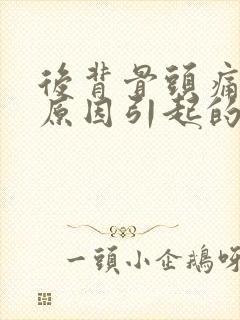 後背骨頭痛
原因引起的
一頭小企鵝呀